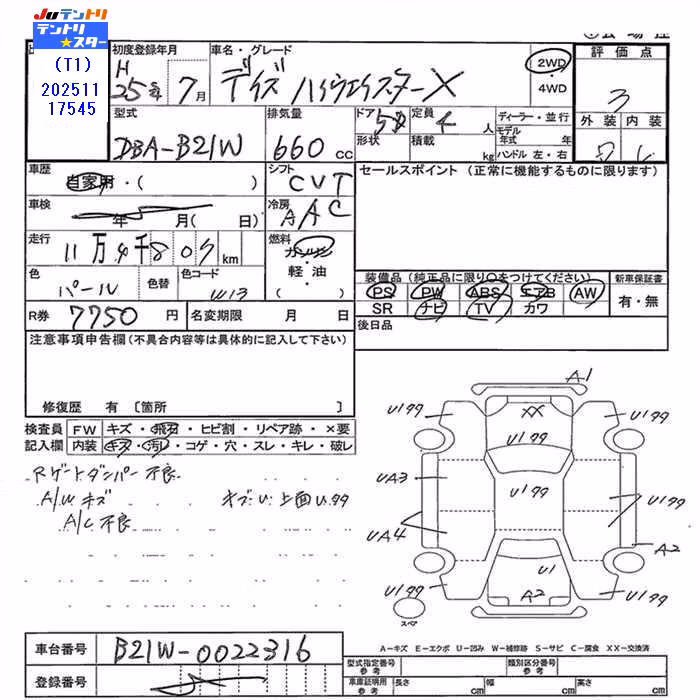 Juテントリ
テントリ
★スター
(T1)
202511
17545
初度登録年月
H
25年
7月
車名・グレード
デイズ ハイウェイスターX
2WD
・
4WD
評価点
3
外装 内装
型式
DBA-B21W
排気量
660 cc
ドア
5
定員
4 人
形状
積載
kg
ディーラー・並行
モデル
年式 年
ハンドル 左・右
車歴
自家用・( )
シフト
CVT
セールスポイント (正常に機能するものに限ります)
車検
年 月( 日)
冷房
AAC
走行
11万4千807km
燃料
ガソリン
・
軽・油
( )
色
パール
色替
色コード
W13
装備品(純正品に限り○をつけてください)
PS PW ABS エアB AW
SR ナビ TV カワ
新車保証書
有・無
R券 7750 円
名変期限 月 日
後日品
注意事項申告欄(不具合内容等は具体的に記入して下さい)
修復歴 有 〔箇所 〕
検査員
記入欄
FW キズ・飛石・ヒビ割・リペア跡・×要
内装 キズ・汚レ・コゲ・穴・スレ・キレ・破レ
Rゲートダンパー不良
A/Wキズ
キズ・U・上面U199
A/C不良
A1
U199
XX
U199
U199
UA3
U199
U199
UA4
A2
U1
U199
A2
U199
スペア
A-キズ E-エクボ U-凹み W-補修跡 S-サビ C-腐食 XX-交換済
車台番号 B21W-0022316
登録番号
型式指定番号
参考
類別区分番号
参考
車庫証明用
参考
長さ cm
幅 cm
高さ cm